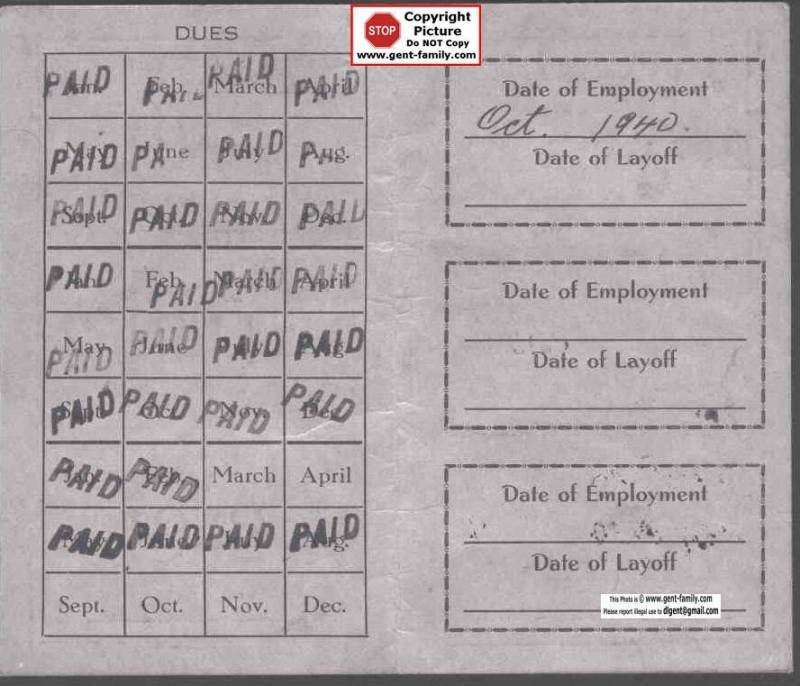 STOP
Copyright
Picture
Do NOT Copy
www.gent-family.com
DUES
PAID Jan. PAID Feb. PAID March PAID April
PAID May PA June PAID July PAID Aug.
PAID Sept. PAID Oct. PAID Nov. PAID Dec.
PAID Jan. PAID Feb. PAID March PAID April
PAID May PAID June PAID July PAID Aug.
PAID Sept. PAID Oct. PAID Nov. PAID Dec.
PAID PAID Feb. March April
PAID May PAID June PAID July PAID Aug.
Sept. Oct. Nov. Dec.
Date of Employment
Oct. 1940.
Date of Layoff
Date of Employment
Date of Layoff
Date of Employment
Date of Layoff
This Photo is © www.gent-family.com
Please report illegal use to digent@gmail.com